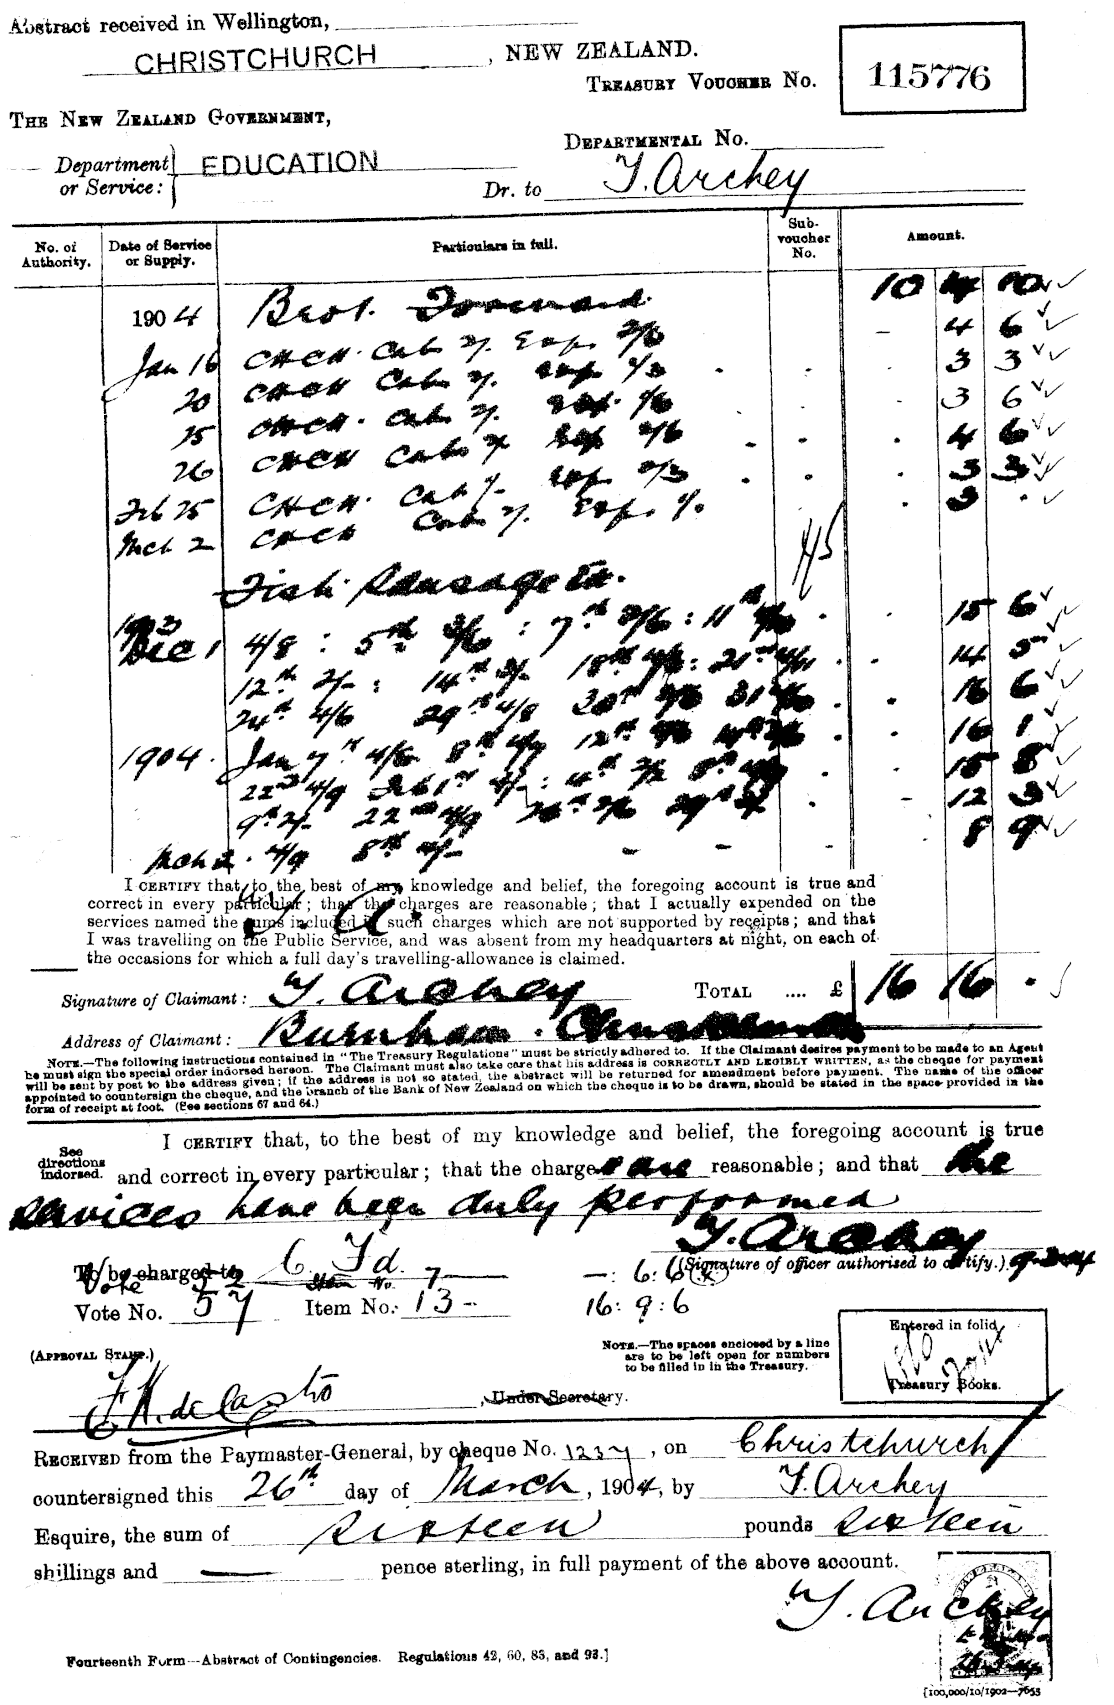 Abstract received in Wellington,
CHRISTCHURCH, NEW ZEALAND.
TREASURY VOUCHER No. 115776
THE NEW ZEALAND GOVERNMENT,
DEPARTMENTAL No.
Department or Service: EDUCATION
Dr. to T. Archey
No. of Authority. Date of Service or Supply. Particulars in full. Sub-voucher No. Amount.
1904 Brot. Forward 10
Jan 16 CHCH. Cab 2/. Exp. 2/6 4 6
20 CHCH Cab 2/. Exp. 1/3 3 3
25 CHCH. Cab 2/. Exp. 1/6 3 6
26 CHCH Cab 2/ Exp 2/6 4 6
Feb 25 CHCH. Cab 1/. Exp. 2/3 3 3
Mch 2 CHCH Cab 2/. Exp. 1/. 3 .
Fish Sausage
1903
Dec 1 4/8 : 5th 3/6 : 7th : 11th 15 6
12th 2/- : 14th 3/- 18th : 21st 14 5
24th 4/6 29th 4/8 30th 31 16 6
1904. Jan 7th 4/6 8th 4/9 12th 16 1
22nd 4/9 Feb 1st 4/- : 4th 8th 15 8
9th 2/- 22nd 4/9 29th 12 3
Mch 2. 4/9 8th 4/- - - - 8 9
I CERTIFY that, to the best of my knowledge and belief, the foregoing account is true and
correct in every particular; that the charges are reasonable; that I actually expended on the
services named the sums included in such charges which are not supported by receipts; and that
I was travelling on the Public Service, and was absent from my headquarters at night, on each of
the occasions for which a full day's travelling-allowance is claimed.
Signature of Claimant: T. Archey TOTAL .... £ 16 16 .
Address of Claimant: Burnham.
NOTE.—The following instructions contained in "The Treasury Regulations" must be strictly adhered to. If the Claimant desires payment to be made to an Agent
he must sign the special order indorsed hereon. The Claimant must also take care that his address is CORRECTLY AND LEGIBLY WRITTEN, as the cheque for payment
will be sent by post to the address given; if the address is not so stated, the abstract will be returned for amendment before payment. The name of the officer
appointed to countersign the cheque, and the branch of the Bank of New Zealand on which the cheque is to be drawn, should be stated in the space provided in the
form of receipt at foot. (See sections 67 and 64.)
See directions indorsed.
I CERTIFY that, to the best of my knowledge and belief, the foregoing account is true
and correct in every particular; that the charges are reasonable; and that the
services have been duly performed
T. Archey
(Signature of officer authorised to certify.)
To be charged to
Vote 52 Item No. 7 —: 6: 6
Vote No. 57 Item No. 13- 16: 9: 6
NOTE.—The spaces enclosed by a line
are to be left open for numbers
to be filled in in the Treasury.
Entered in folio
Treasury Books.
(APPROVAL STAMP.)
F. K. de Castro, Under-Secretary.
RECEIVED from the Paymaster-General, by cheque No. 1237, on Christchurch
countersigned this 26th day of March, 1904, by T. Archey
Esquire, the sum of Sixteen pounds Sixteen
shillings and — pence sterling, in full payment of the above account.
T. Archey
Fourteenth Form—Abstract of Contingencies. Regulations 42, 60, 83, and 93.]
[100,000/10/1902—7653